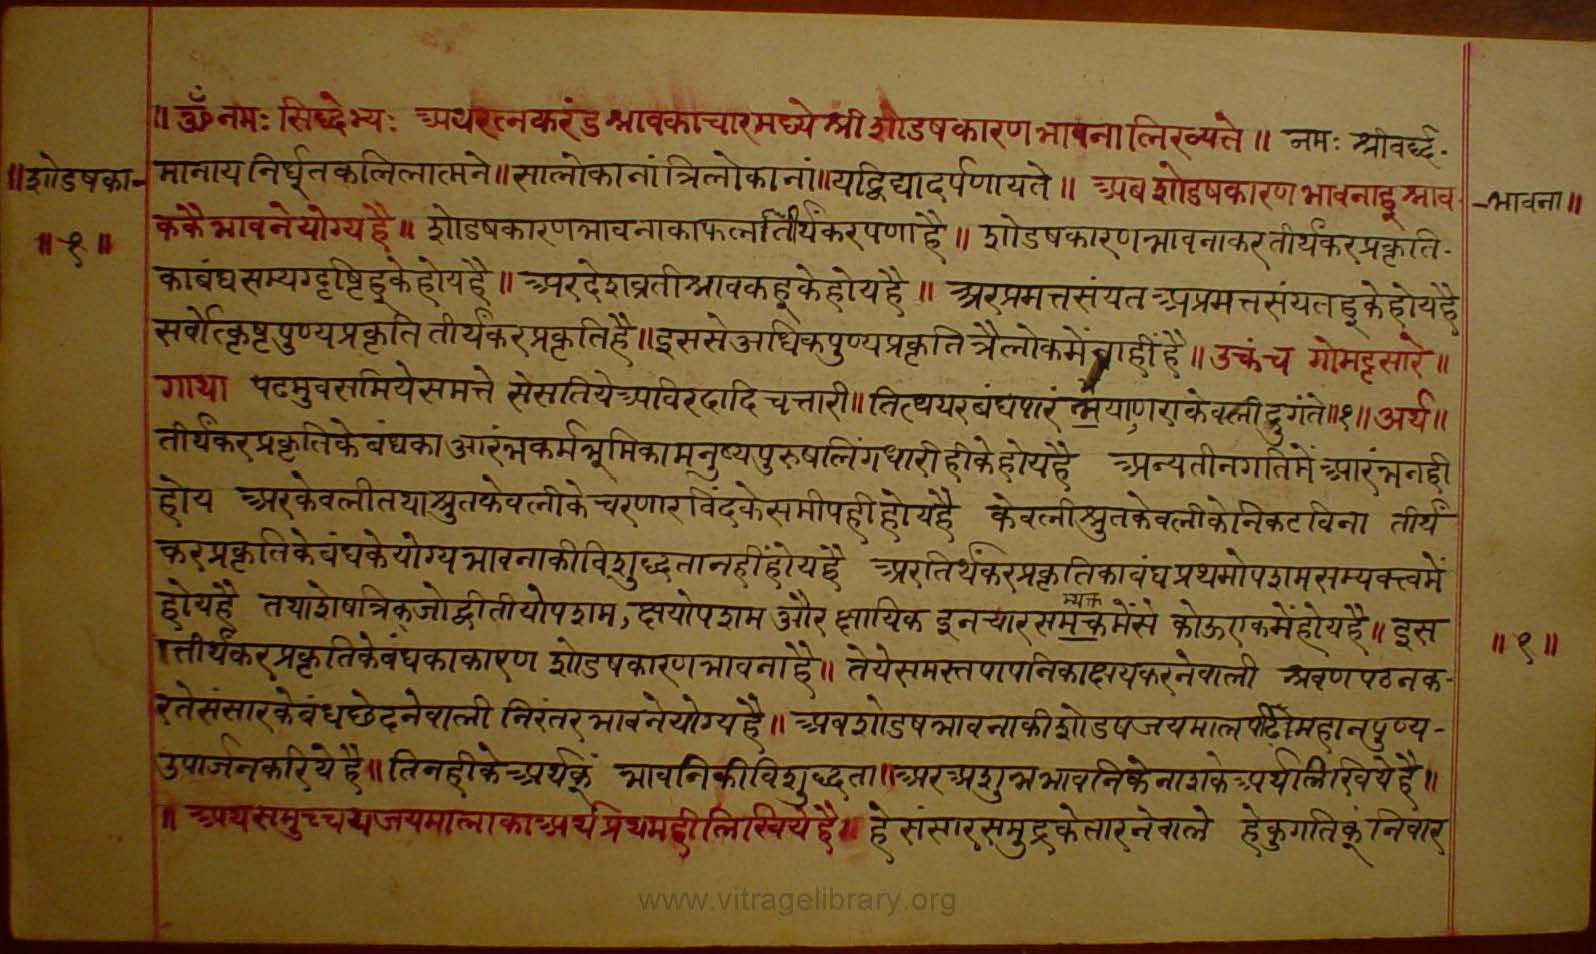 ॥ ॐ नमः सिद्धेभ्यः अथरत्नकरंडश्रावकाचारमध्येश्रीशोडषकारणभावनालिख्यते ॥ नमः श्रीवर्द्ध-
॥शोडषका- मानायनिर्धूतकलिलात्मने॥ सालोकानांत्रिलोकानां॥ यद्विद्यादर्पणायते ॥ अबशोडषकारणभावनाहूश्राव- -भावना॥
॥१॥ ककैभावनेयोग्यहै॥ शोडषकारणभावनाकाफलतीर्थंकरपणाहै॥ शोडषकारणभावनाकरतीर्थंकरप्रकृति-
काबंधसम्यग्दृष्टिहूकेहोयहै॥ अरदेशव्रतीश्रावकहूकेहोयहै॥ अरप्रमत्तसंयतअप्रमत्तसंयतहूकेहोयहै
सर्वोत्कृष्टपुण्यप्रकृतितीर्थंकरप्रकृतिहै॥ इससेअधिकपुण्यप्रकृतित्रैलोकमेंनाहींहै॥ उक्तंच गोमट्टसारे॥
गाथा पढमुवसमियेसमत्ते सेसतियेअविरदादिचत्तारी॥ तित्थयरबंधपारंभयाणराकेवलीदुगंते॥१॥ अर्थ॥
तीर्थंकरप्रकृतिकेबंधकाआरंभकर्मभूमिकामनुष्यपुरुषलिंगधारीहीकेहोयहै अन्यतीनगतिमेंआरंभनही
होय अरकेवलीतथाश्रुतकेवलीकेचरणारविंदकेसमीपहीहोयहै केवलीश्रुतकेवलीकेनिकटविना तीर्थं
करप्रकृतिकेबंधकेयोग्यभावनाकीविशुद्धतानहींहोयहै अरतिर्थंकरप्रकृतिकाबंधप्रथमोपशमसम्यक्त्वमें
होयहै तथाशेषत्रिकजोद्वीतीयोपशम, क्षयोपशम और क्षायिक इनचारसम्यक्तमेंसे कोऊएकमेंहोयहै॥ इस
तीर्थंकरप्रकृतिकेबंधकाकारण शोडषकारणभावनाहै॥ तेयेसमस्तपापनिकाक्षयकरनेवाली श्रवणपठनक- ॥१॥
रतेसंसारकेबंधछेदनेवाली निरंतरभावनेयोग्यहै॥ अबशोडषभावनाकीशोडषजयमाल महानपुण्य-
उपार्जनकरियेहै॥ तिनहीकेअर्थकूं भावनिकीविशुद्धता॥ अरअशुभभावनिकेनाशकेअर्थलिखियेहै॥
॥ अथसमुच्चयजयमालाकाअर्थप्रथमहीलिखियेहै॥ हेसंसारसमुद्रकेतारनेवाले हेकुगतिकूंनिवार
www.vitragelibrary.org